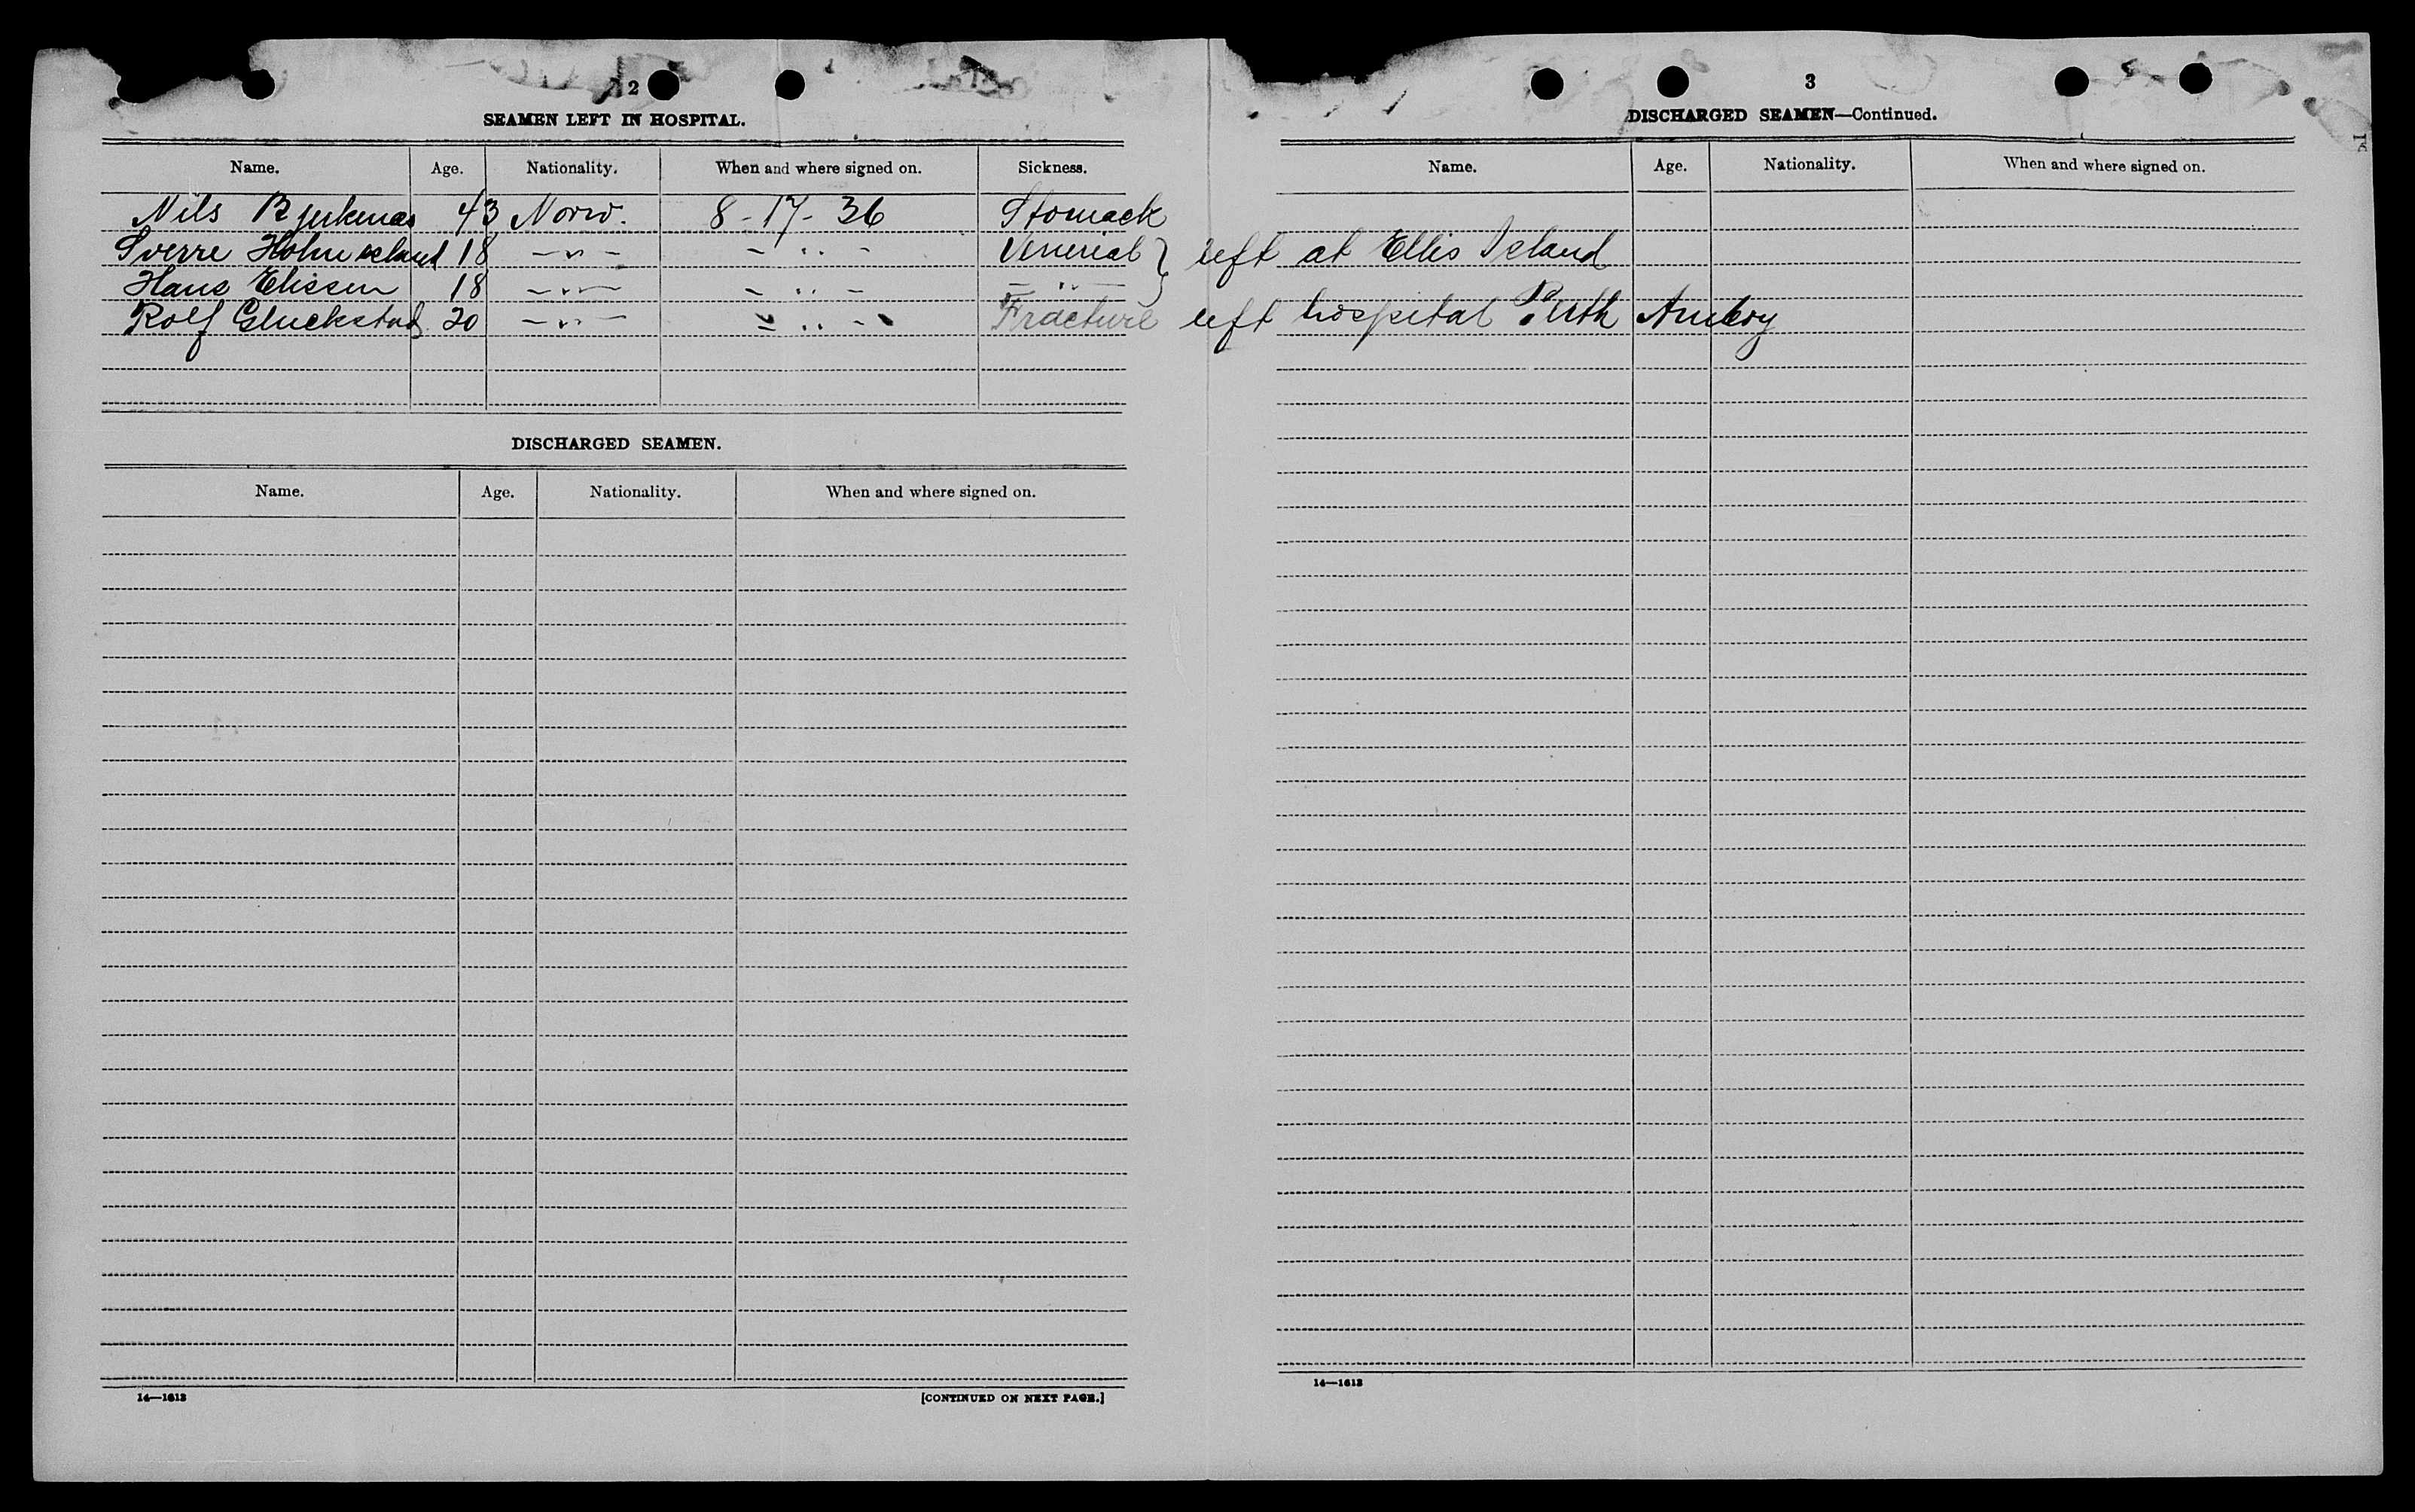 2
SEAMEN LEFT IN HOSPITAL.
Name. Age. Nationality. When and where signed on. Sickness.
Nils 43 Norw. 8-17-36 Stomack
Sverre 18 -"- -"- Venerial } left at Ellis Island
Hans Elissen 18 -"- -"- -"-
Rolf Gluckstad 20 -"- -"- Fracture left hospital Perth Amboy
DISCHARGED SEAMEN.
Name. Age. Nationality. When and where signed on.
14—1613
[CONTINUED ON NEXT PAGE.]
3
DISCHARGED SEAMEN—Continued.
Name. Age. Nationality. When and where signed on.
14—1613